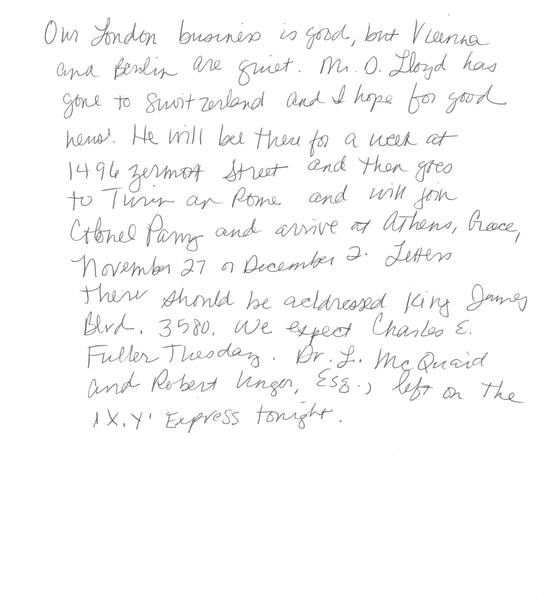 Our London business is good, but Vienna
and Berlin are quiet. Mr. D. Lloyd has
gone to Switzerland and I hope for good
news. He will be there for a week at
1496 Zermott Street and then goes
to Turin an Rome and will join
Colonel Parry and arrive at Athens, Greece,
November 27 or December 2. Letters
there should be addressed King James
Blvd. 3580. We expect Charles E.
Fuller Tuesday. Dr. L. McQuaid
and Robert Unger, Esq., left on the
'X.Y.' Express tonight.